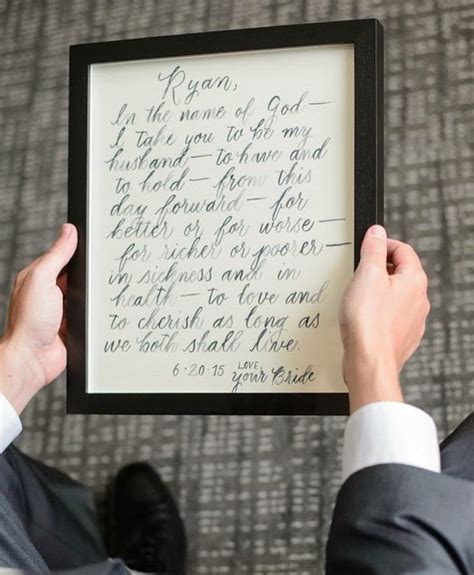 Ryan,
In the name of God—
I take you to be my
husband— to have and
to hold— from this
day forward— for
better or for worse—
for richer or poorer—
in sickness and in
health— to love and
to cherish as long as
we both shall live.
6·20·15 LOVE, your Bride